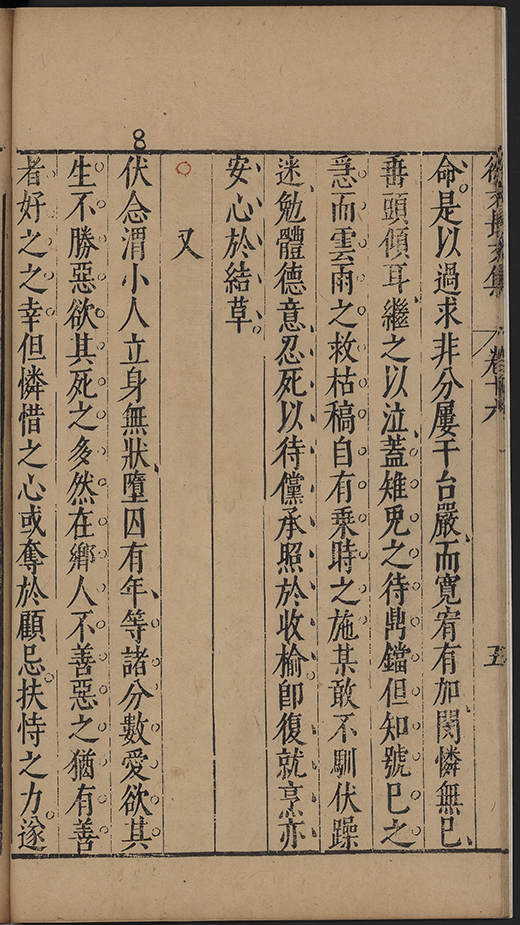 徐文長文集 卷十六 五
命是以過求非分屢干台嚴而寬宥有加閔憐無已
垂頭傾耳繼之以泣蓋雉兎之待鼎鐺但知號已之
急而雲雨之救枯稿自有乗時之施某敢不馴伏躁
迷勉體德意忍死以待儻承照於收榆卽復就烹亦
安心於結草
又
伏念渭小人立身無狀墮囚有年等諸分數愛欲其
生不勝惡欲其死之多然在鄉人不善惡之猶有善
者好之之幸但憐惜之心或奪於顧忌扶恃之力遂
8